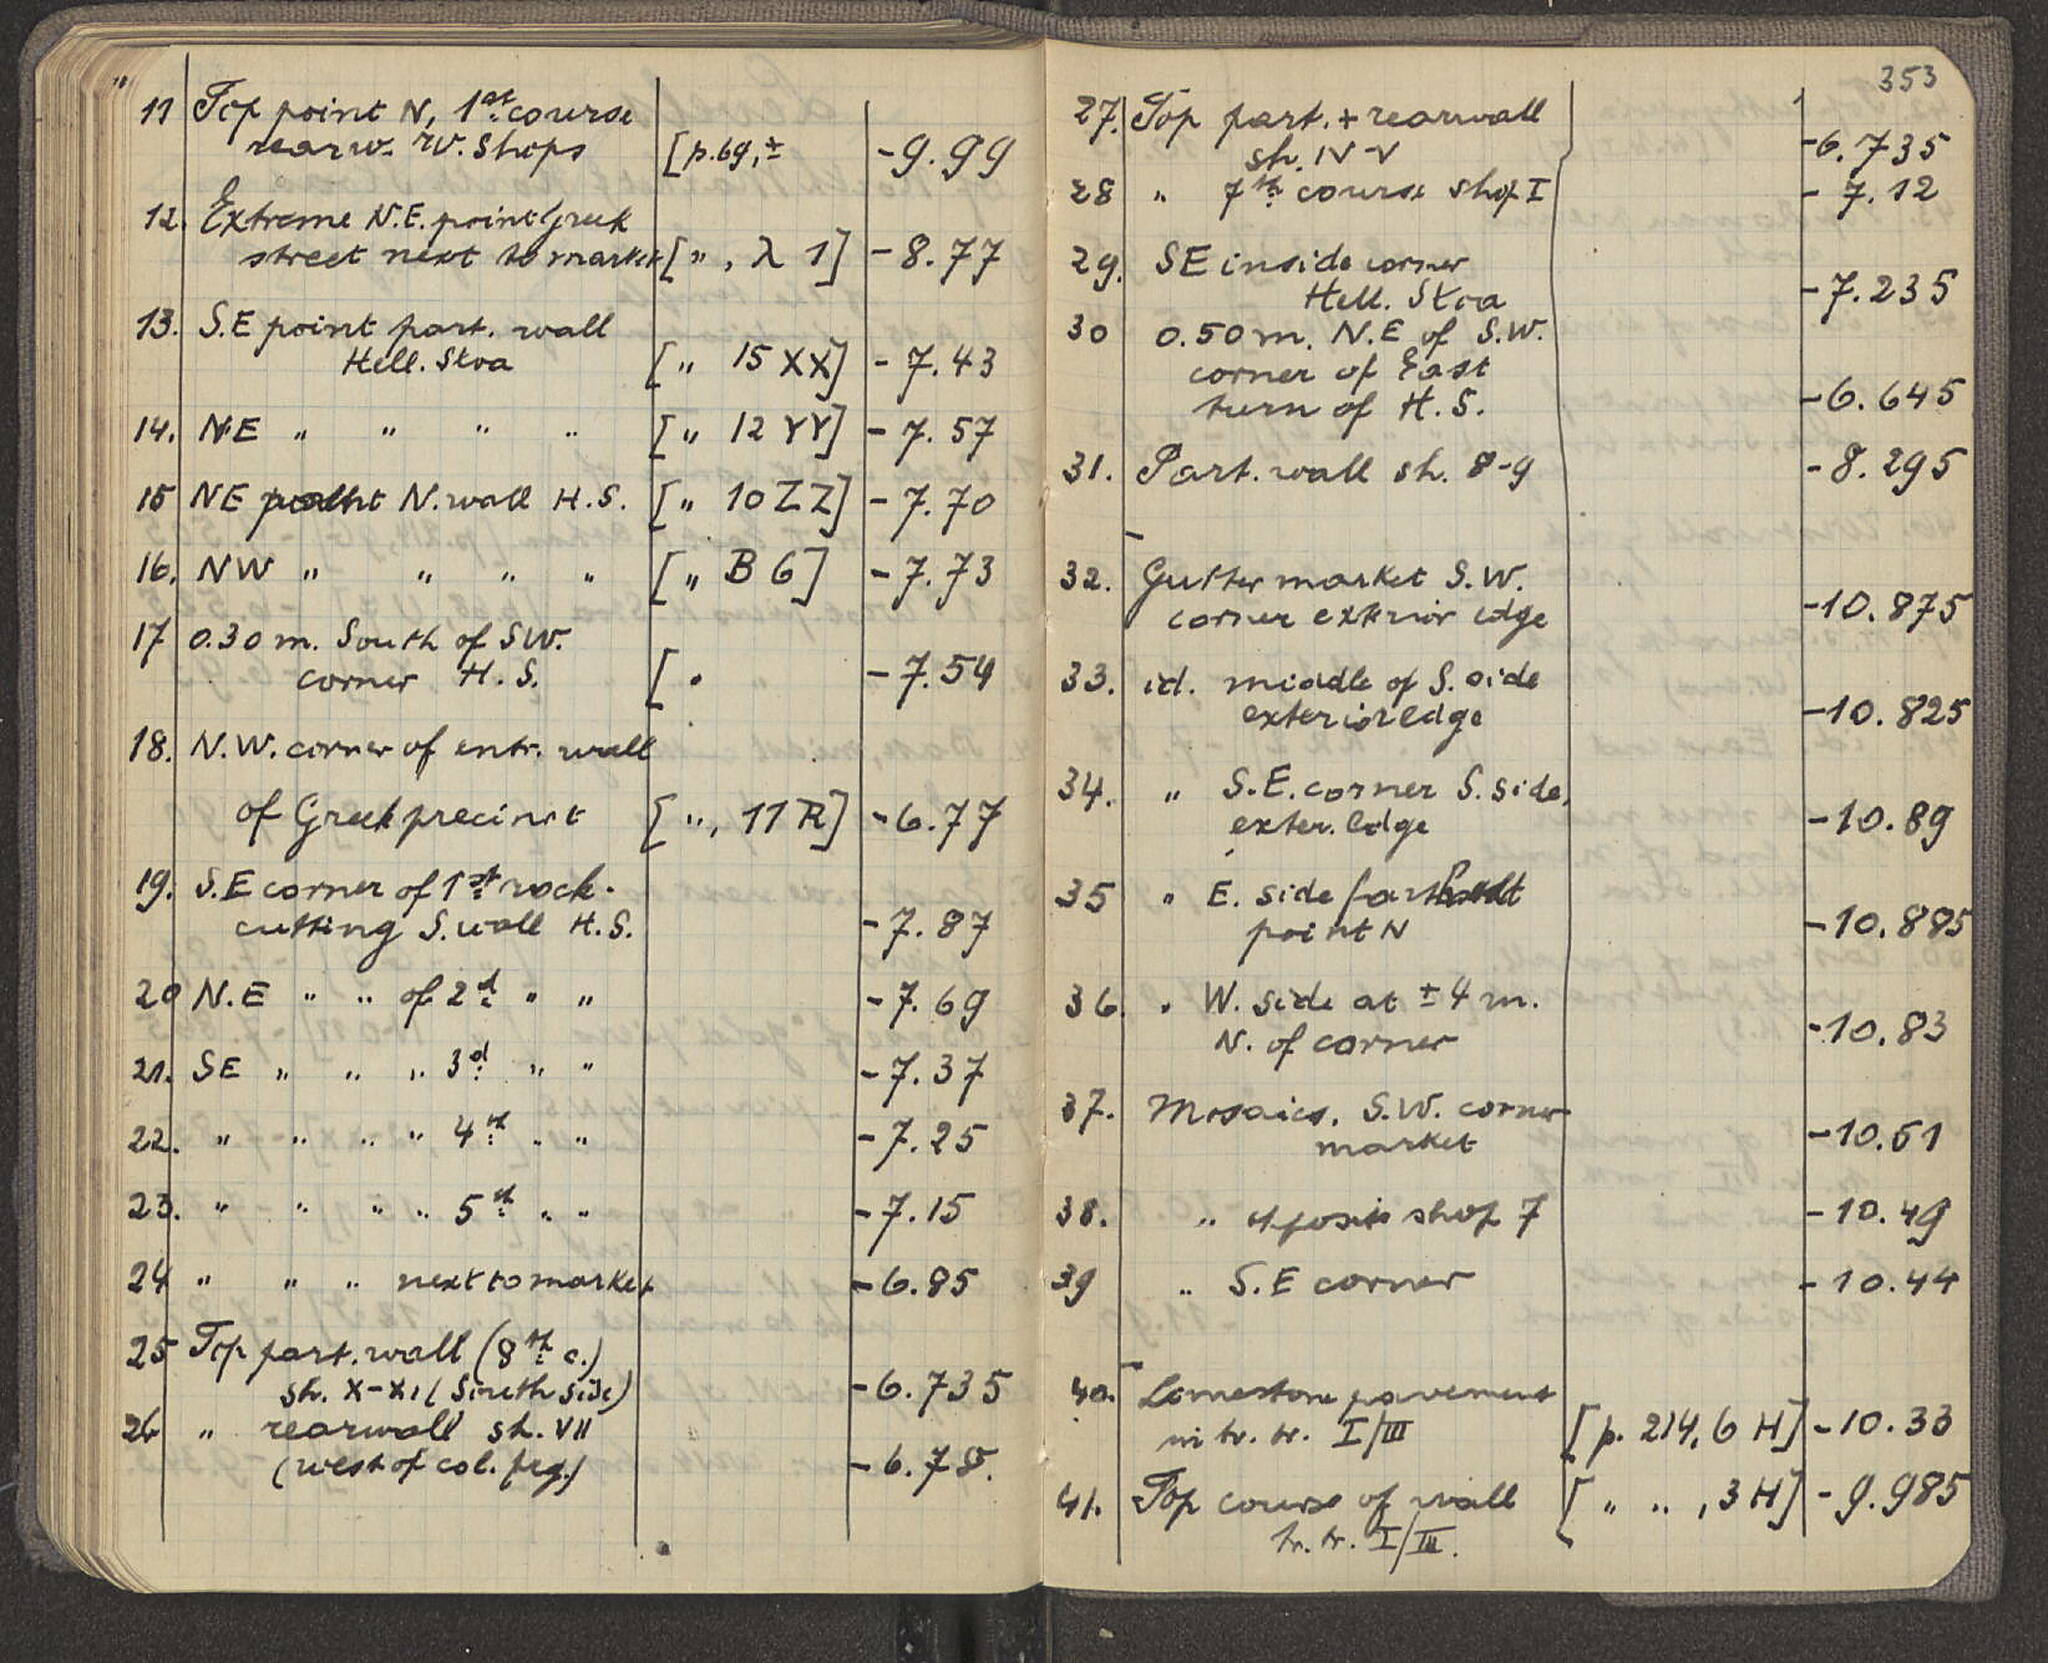 "
11 Top point N, 1st course
rearw. W. Shops [p. 69, ± -9.99
12. Extreme N.E. point Greek
street next to market [ " , λ 1] -8.77
13. S.E point part. wall
Hell. Stoa [ " 15 XX] -7.43
14. N.E " " " " [ " 12 YY] -7.57
15 NE point N. wall H.S. [ " 10 ZZ] -7.70
16. NW " " " " [ " B 6] -7.73
17 0.30 m. South of SW.
corner H.S. [ " -7.54
18. N.W. corner of entr. wall
of Greek precinct [ " , 11 R] -6.77
19. S.E corner of 1st rock-
cutting S. wall H.S. -7.87
20 N.E " " of 2d " " -7.69
21. SE " " " 3d " " -7.37
22. " " " " 4th " " -7.25
23. " " " " 5th " " -7.15
24 " " " next to market -6.85
25 Top part. wall (8th c.)
sh. X-XI (South side) -6.735
26 " rearwall sh. VII
(west of col. frg.) -6.78.
353
27. Top part. + rearwall
sh. IV-V -6.735
28 " 7th course shop I -7.12
29. SE inside corner
Hell. Stoa -7.235
30 0.50 m. N.E of S.W.
corner of East
turn of H.S. -6.645
31. Part. wall sh. 8-9 -8.295
32. Gutter market S.W.
corner exterior edge -10.875
33. id. middle of S. side
exterior edge -10.825
34. " S.E. corner S. side,
exter. edge -10.89
35 " E. side farthest
point N -10.885
36. " W. side at ± 4 m.
N. of corner -10.83
37. Mosaics, S.W. corner
market -10.51
38. " opposite shop 7 -10.49
39 " S.E corner -10.44
40. Limestone pavement
in tr. tr. I/III [p. 214, 6 H] -10.33
41. Top course of wall [ " " , 3 H] -9.985
tr. tr. I/III.